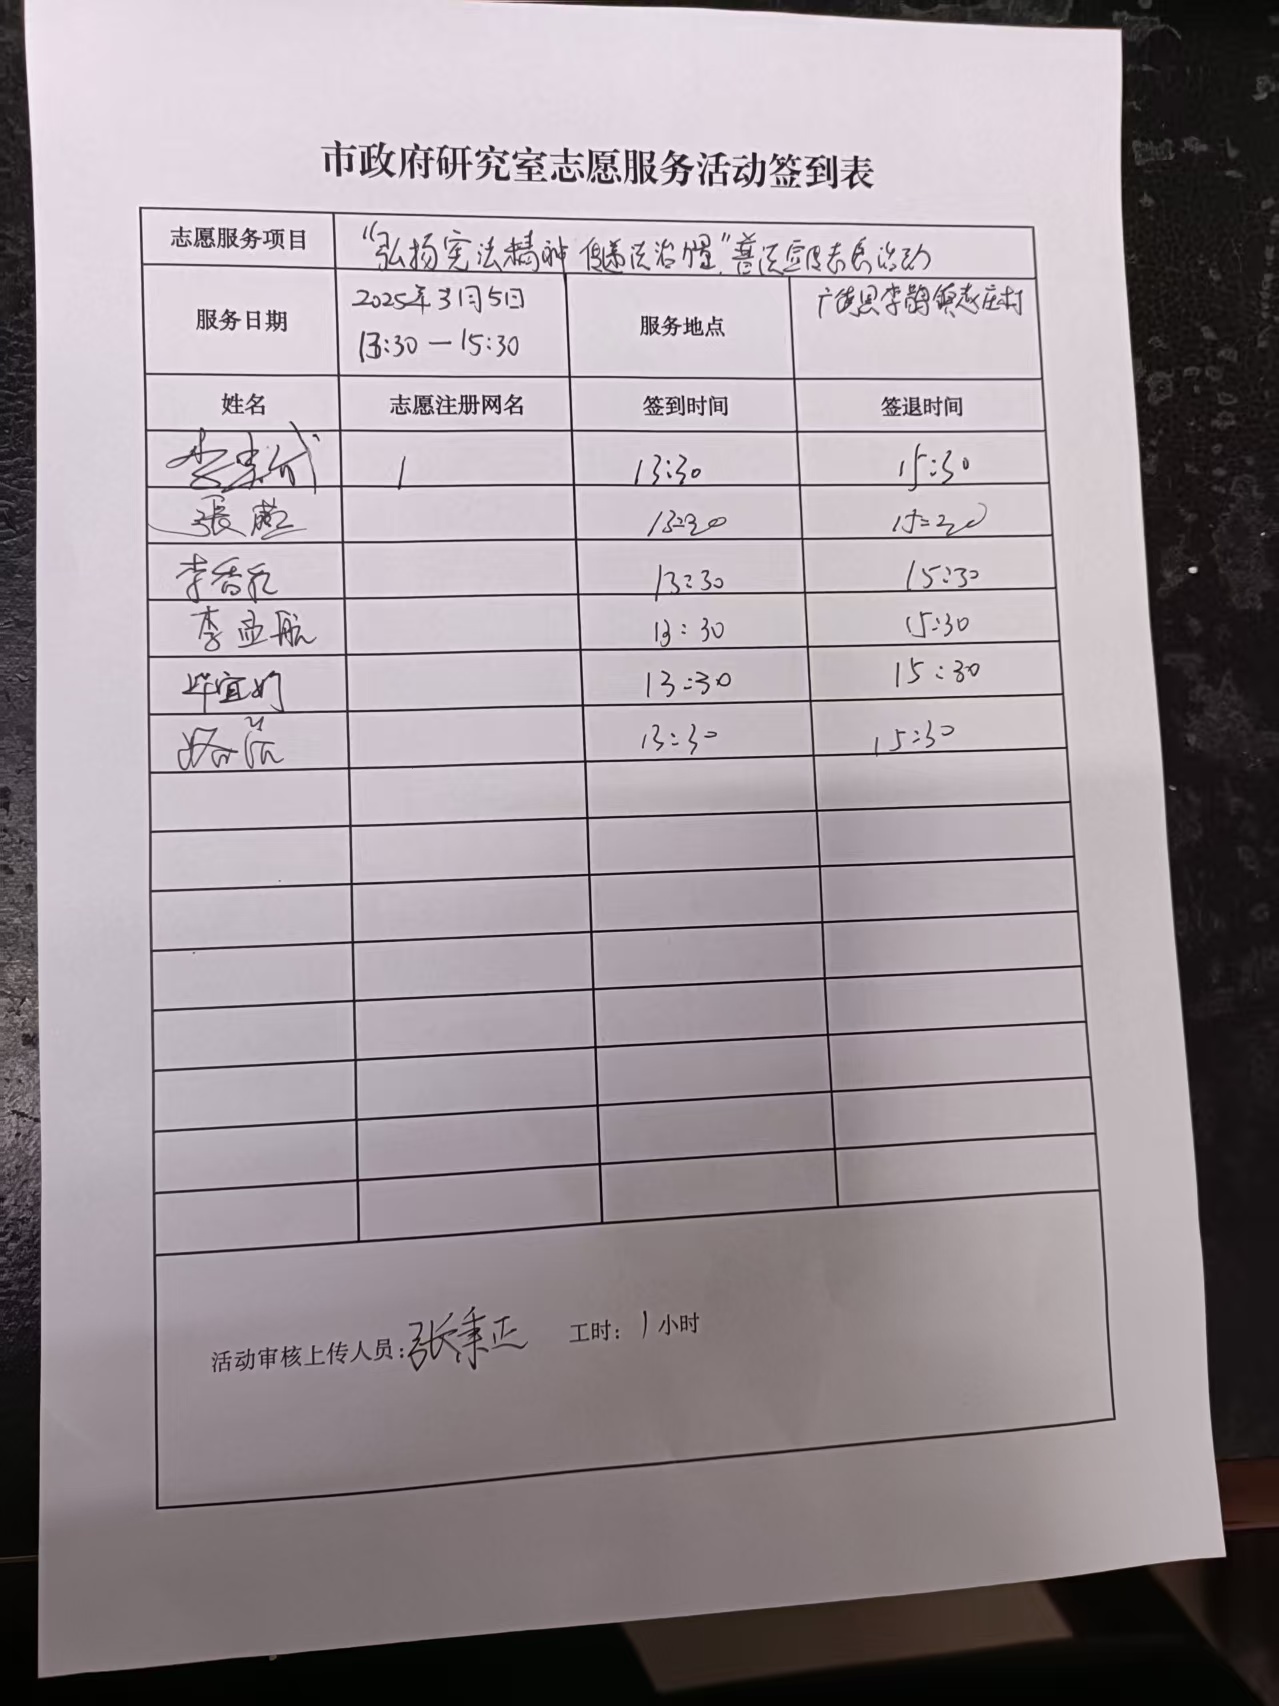 市政府研究室志愿服务活动签到表
志愿服务项目 “弘扬宪法精神 法治 ”普法宣 志愿活动
服务日期 2025年3月5日 13:30—15:30 服务地点 庄村
姓名 志愿注册网名 签到时间 签退时间
13:30 15:30
張 13:30 15:30
李香 13:30 15:30
李孟航 13:30 15:30
毕宜 13:30 15:30
13:30 15:30
活动审核上传人员:张秉正 工时: 1 小时